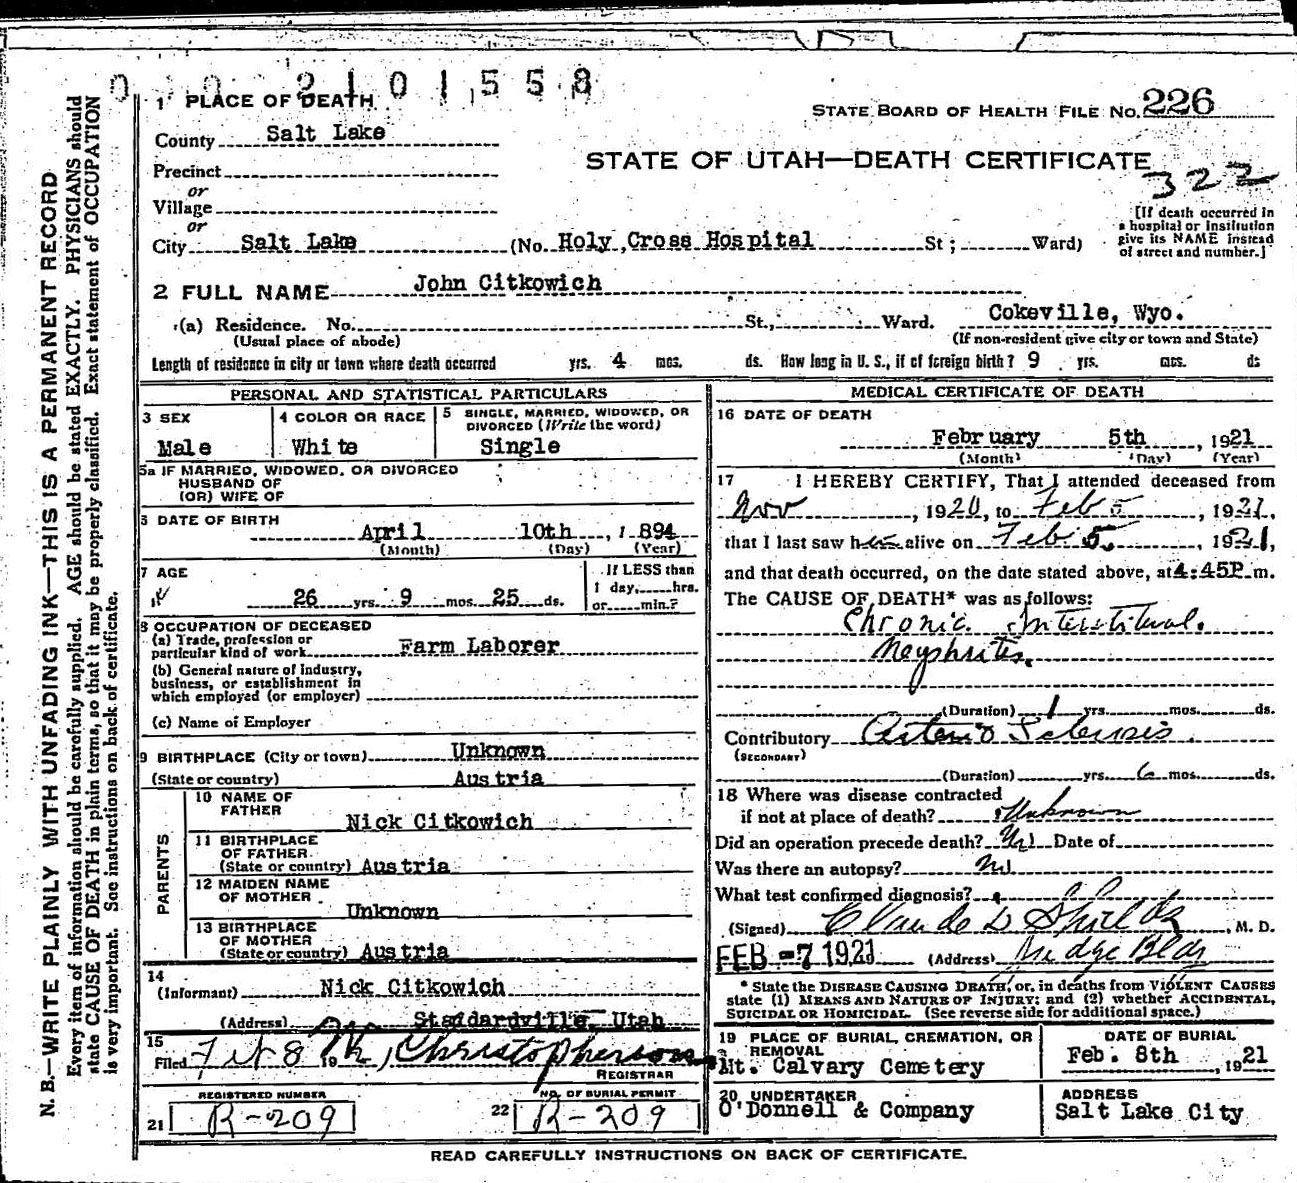 2101558
1 PLACE OF DEATH
STATE BOARD OF HEALTH FILE NO. 226
County Salt Lake
STATE OF UTAH—DEATH CERTIFICATE
322
Precinct
or
Village
or
[If death occurred in
a hospital or institution
give its NAME instead
of street and number.]
City Salt Lake (No. Holy Cross Hospital St; Ward)
2 FULL NAME John Citkowich
(a) Residence. No. St., Ward. Cokeville, Wyo.
(Usual place of abode) (If non-resident give city or town and State)
Length of residence in city or town where death occurred yrs. 4 mos. ds. How long in U. S., if of foreign birth? 9 yrs. mos. ds
PERSONAL AND STATISTICAL PARTICULARS
3 SEX
Male
4 COLOR OR RACE
White
5 SINGLE, MARRIED, WIDOWED, OR
DIVORCED (Write the word)
Single
5a IF MARRIED, WIDOWED, OR DIVORCED
HUSBAND OF
(OR) WIFE OF
6 DATE OF BIRTH
April 10th, 1894
(Month) (Day) (Year)
7 AGE
26 yrs. 9 mos. 25 ds.
If LESS than
1 day, hrs.
or min.?
8 OCCUPATION OF DECEASED
(a) Trade, profession or
particular kind of work Farm Laborer
(b) General nature of industry,
business, or establishment in
which employed (or employer)
(c) Name of Employer
9 BIRTHPLACE (City or town) Unknown
(State or country) Austria
PARENTS
10 NAME OF
FATHER
Nick Citkowich
11 BIRTHPLACE
OF FATHER
(State or country) Austria
12 MAIDEN NAME
OF MOTHER
Unknown
13 BIRTHPLACE
OF MOTHER
(State or country) Austria
14
(Informant) Nick Citkowich
(Address) Standardville, Utah
15
Filed Feb 8 19 Christopherson
REGISTRAR
REGISTERED NUMBER
21 R-209
NO. OF BURIAL PERMIT
22 R-209
MEDICAL CERTIFICATE OF DEATH
16 DATE OF DEATH
February 5th, 1921
(Month) (Day) (Year)
17 I HEREBY CERTIFY, That I attended deceased from
Nov, 1920, to Feb 5, 1921,
that I last saw him alive on Feb 5, 1921,
and that death occurred, on the date stated above, at 4:45P m.
The CAUSE OF DEATH* was as follows:
Chronic Interstitual
Neyphrites.
(Duration) 1 yrs. mos. ds.
Contributory Arterio Sclerosis.
(SECONDARY)
(Duration) yrs. 6 mos. ds.
18 Where was disease contracted
if not at place of death? Unknown
Did an operation precede death? No Date of
Was there an autopsy? No
What test confirmed diagnosis?
(Signed) Claude L Shields, M. D.
FEB -7 1921 (Address) Judge Bldg
* State the DISEASE CAUSING DEATH, or, in deaths from VIOLENT CAUSES
state (1) MEANS AND NATURE OF INJURY; and (2) whether ACCIDENTAL,
SUICIDAL OR HOMICIDAL. (See reverse side for additional space.)
19 PLACE OF BURIAL, CREMATION, OR
REMOVAL
Mt. Calvary Cemetery
DATE OF BURIAL
Feb. 8th, 1921
20 UNDERTAKER
O'Donnell & Company
ADDRESS
Salt Lake City
READ CAREFULLY INSTRUCTIONS ON BACK OF CERTIFICATE.
N. B.—WRITE PLAINLY WITH UNFADING INK—THIS IS A PERMANENT RECORD
Every item of information should be carefully supplied. AGE should be stated EXACTLY. PHYSICIANS should
state CAUSE OF DEATH in plain terms, so that it may be properly classified. Exact statement of OCCUPATION
is very important. See instructions on back of certificate.